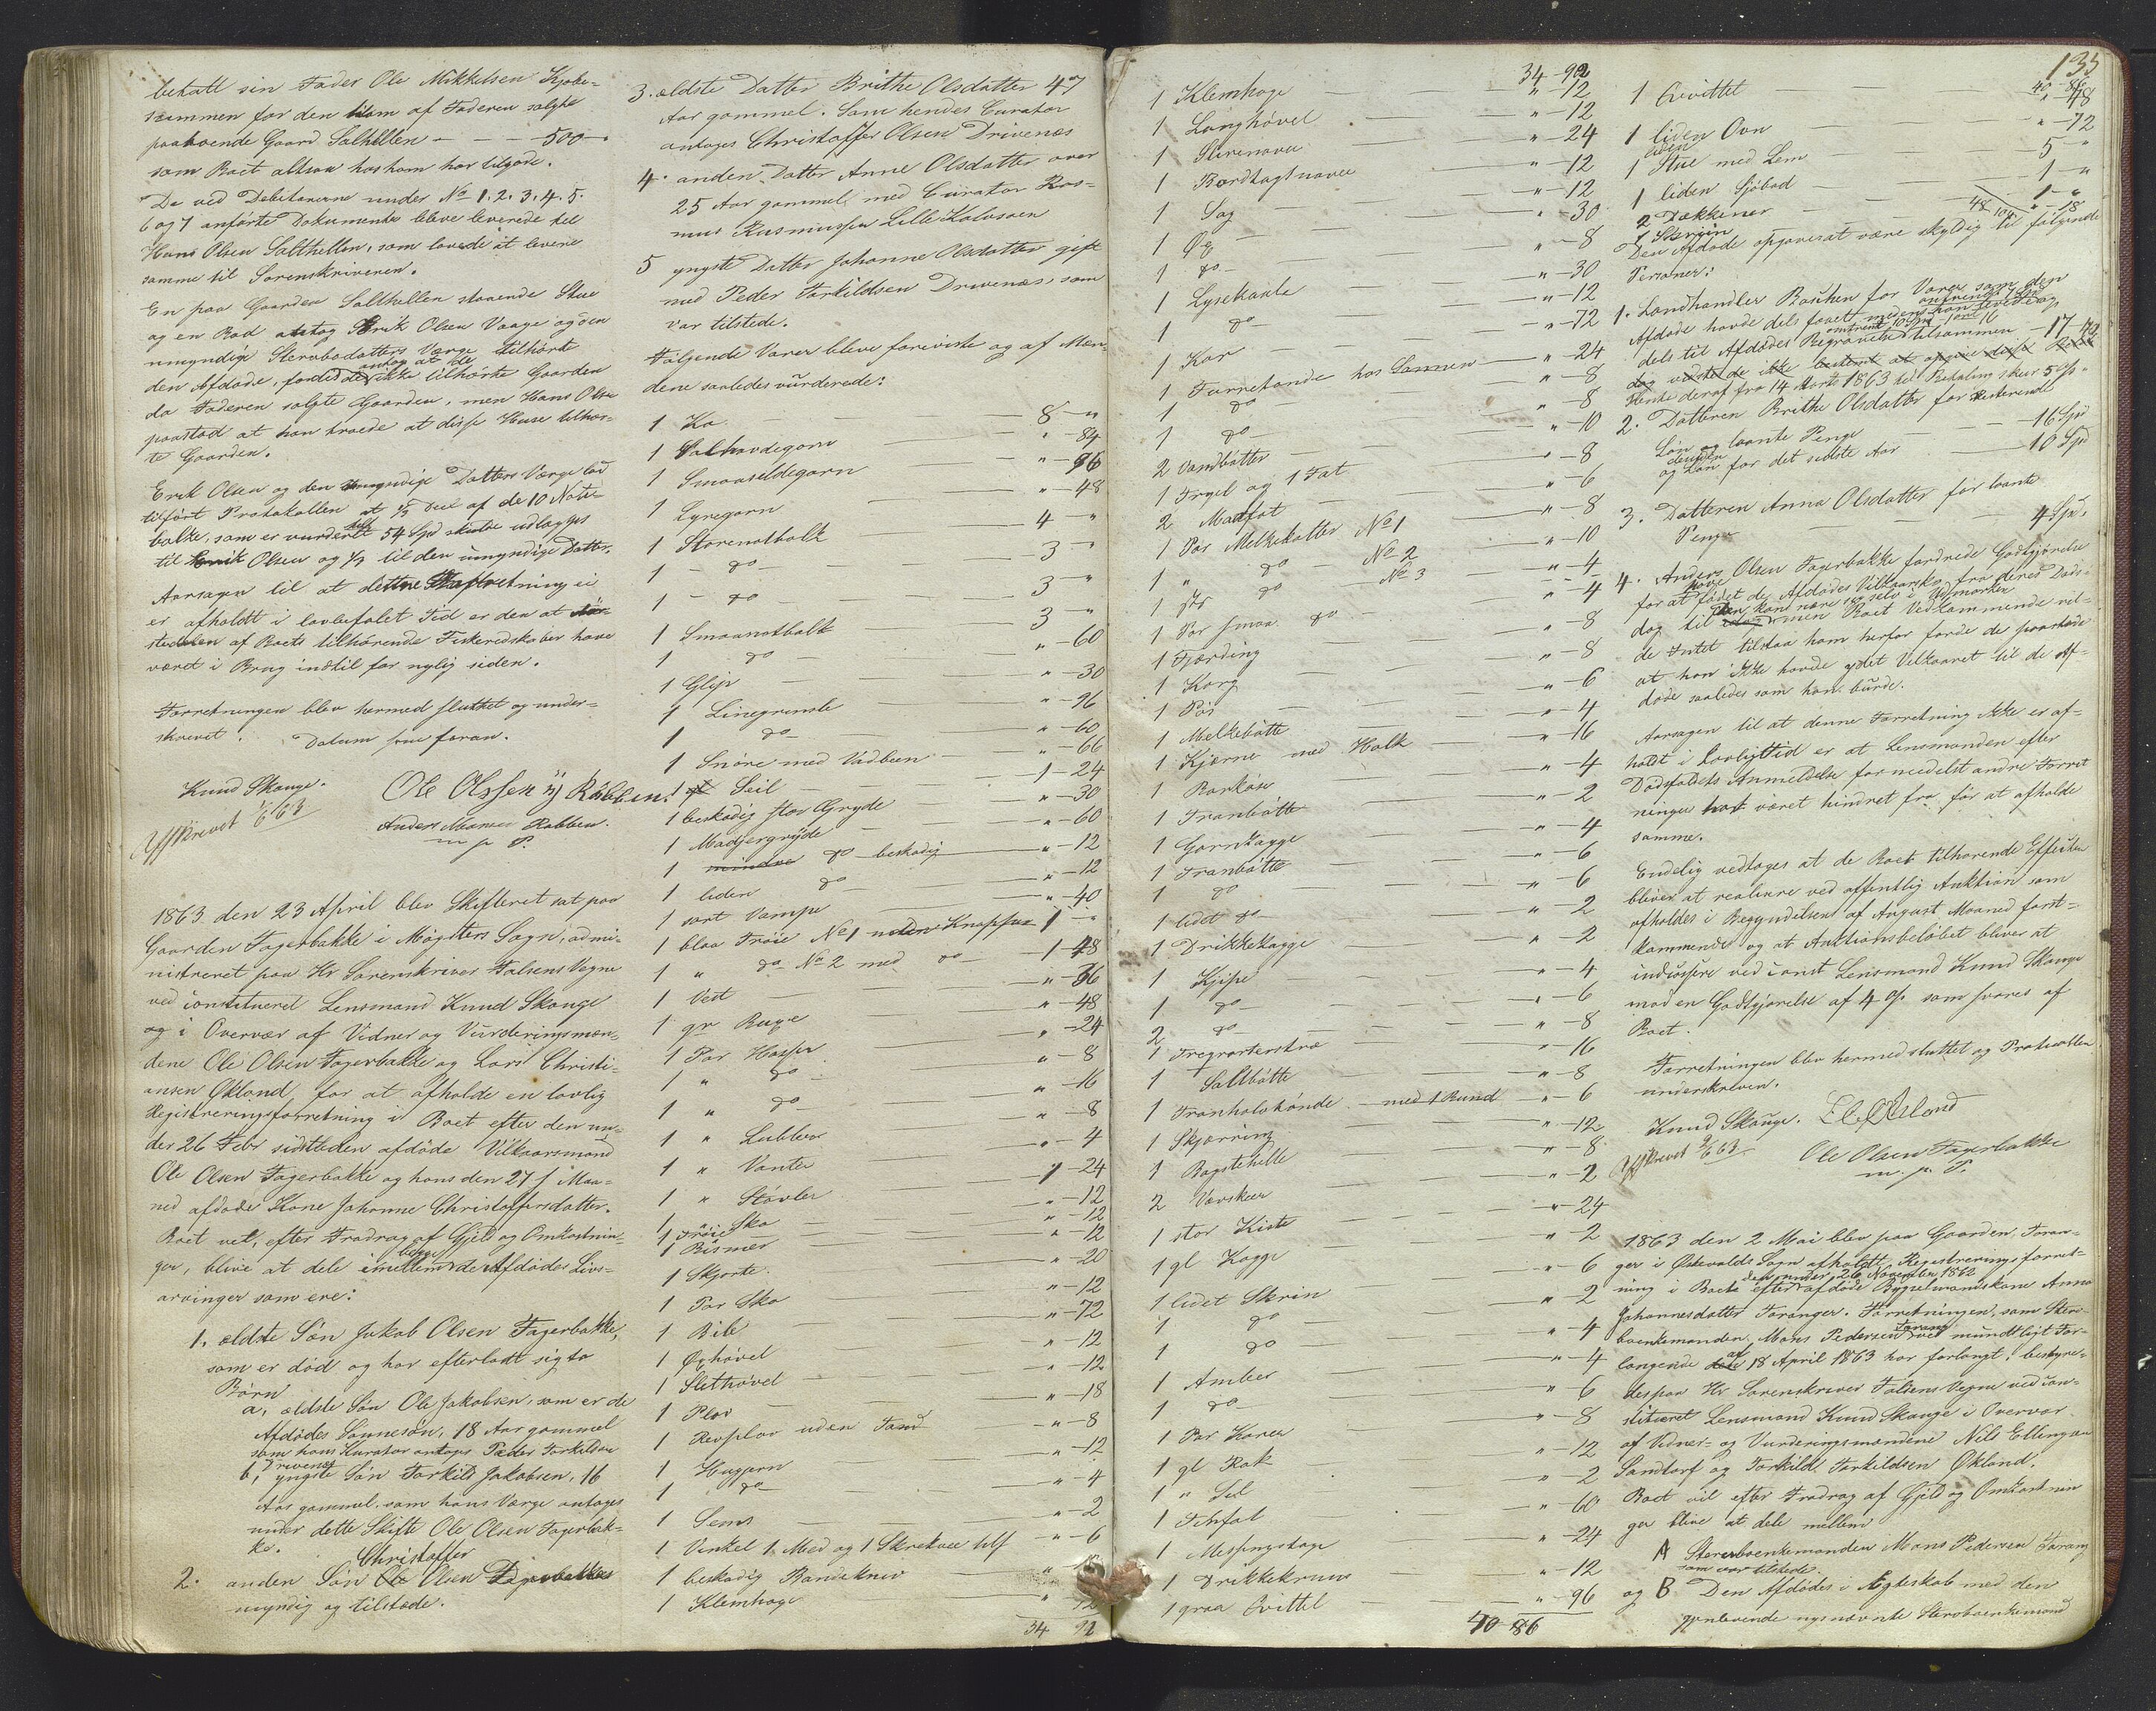 betalt sin Fader Ole Mikkelsen Kjøbe-
summen for den ham af Faderen solgte
paaboende Gaard Salthellen — — 500 —
som Boet altsaa hos ham har tilgode.
De ved Debitorerne under No 1. 2. 3. 4. 5.
6 og 7 anførte Dokumenter bleve leverede til
Hans Olsen Salthellen, som lovede at levere
samme til Sorenskriveren.
En paa Gaarden Salthellen staaende Stue
og en Bod Erik Olsen Vaage og den
umyndige Sterbodatters Værge tilhørte
den Afdøde, fordi de ikke tilhørte Gaarden
da Faderen solgte Gaarden, men Hans Olsen
paastod at han troede at disse Huse tilhør-
te Gaarden.
Erik Olsen og den umyndige Datters Værge lod
tilført Protokollen at 1/3 Deel af de 10 Note-
bolke, som er vurderet til 54 Spd skulle udlægges
til Erik Olsen og 1/3 til den umyndige Datter.
Aarsagen til at denne Forretning ei
er afholdt i lovbefalet Tid er den at Stør-
stedelen af Boets tilhørende Fiskeredskaber have
været i Brug indtil for nylig siden.
Forretningen blev hermed sluttet og under-
skrevet. Datum som foran.
Knud Skauge. Ole Olssen Rabben.
Anders Monsen Rabben.
m p P.
Afskrevet 1/6 63
1863 den 23 April blev Skifteret sat paa
Gaarden Fagerbakke i Møgsters Sogn, admi-
nistreret paa Hr Sorenskriver Falsens Vegne
ved constitueret Lensmand Knud Skauge
og i Overvær af Vidner og Vurderingsmæn-
dene Ole Olsen Fagerbakke og Lars Christi-
ansen Økland for at afholde en lovlig
Registreringsforretning i Boet efter den un-
der 26 Febr sidstleden afdøde Vilkaarsmand
Ole Olsen Fagerbakke og hans den 27 f Maa-
ned afdøde Kone Johanne Christoffersdatter.
Boet vil, efter Fradrag af Gjeld og Omkostnin-
ger, blive at dele imellem begge de Afdødes Livs-
arvinger som ere:
1. ældste Søn Jakob Olsen Fagerbakke,
som er død og har efterladt sig to
Børn
a, ældste Søn Ole Jakobsen, som er de
Afdødes Sønnesøn, 18 Aar gammel
som hans Kurator antages Peder Torkildsen
Drivenes
b, yngste Søn Torkild Jakobsen, 16
Aar gammel, som hans Værge antages
under dette Skifte Ole Olsen Fagerbak-
ke.
2. anden Søn Christoffer Olsen Fagerbakke
myndig og tilstæde.
3. ældste Datter Brithe Olsdatter 47
Aar gammel. Som hendes Curator
antages Christoffer Olsen Drivenæs
4. anden Datter Anne Olsdatter over
25 Aar gammel, med Curator Ras-
mus Rasmussen Lille Kalvsøen
5 yngste Datter Johanne Olsdatter gift
med Peder Torkildsen Drivenæs, som
var tilstede.
Følgende Varer bleve foreviste og af Mæn-
dene saaledes vurderede:
1 Ko — 8 - "
1 — " - 84
1 Smaasildegarn — " - 96
1 Lyregarn — " - 48
1 Storenotbolk — 4 - "
1 - do - — 3 - "
1 - do — 3 - "
1 Smaanotbolk — 3 - "
1 do — " - 60
1 Glip — " - 30
1 Linegrunsle — " - 96
1 do — " - 60
1 Snöre med Vadbeen — " - 66
1 Seil — 1 - 24
1 beskadig stor Gryde — " - 30
1 Madjergryde — " - 60
1 mindre do beskadig — " - 12
1 liden do — " - 12
1 sort Vampe — " - 40
1 blaa Trøie No 1 uden Knapper 1 - "
1 " do No 2 med do — 1 - 48
1 Vest — " - 36
1 gr Buxe — " - 48
1 Par Hoser — " - 24
1 " do — " - 8
1 " do — " - 16
1 " Lubber — " - 8
1 " Vanter — " - 4
1 " Støvler — 1 - 24
1 " Sko — " - 12
1 Trøie — " - 12
1 Bismer — " - 12
1 Skjorte — " - 20
1 Par Sko — " - 12
1 Bibl — " - 72
1 Øghøvel — " - 12
1 Sletthøvel — " - 12
1 Plov — " - 18
1 Revplov uden Tand — " - 8
1 Hugjern — " - 12
1 do — " - 4
1 Sems — " - 2
1 Vinkel 1 Med og 1 — " - 6
1 beskadig Bandekniv
1 Klemhage
34 92
34 - 92
1 Klemhage — " - 12
1 Langhøvel — " - 12
1 Skrenaver — " - 24
1 Bordtagsnaver — " - 12
1 Sag — " - 12
1 Øx — " - 30
1 do — " - 8
1 Lysekaale — " - 30
1 do — " - 12
1 Kar — " - 72
1 Torretønde hos — " - 24
1 do — " - 8
1 do — " - 8
2 Vandbøtter — " - 10
1 Trygel og 1 Fat — " - 8
2 Madfat — " - 6
1 Par Melkekoller No 1 — " - 8
1 " do No 2 — " - 10
1 Par do No 3 — " - 4
1 Par smaa do — " - 4
1 Fjærding — " - 8
1 Korg — " - 8
1 Pøs — " - 6
1 Melkebøtte — " - 4
1 Kjærne med Holk — " - 16
1 — " - 4
1 Tranbøtte — " - 2
1 Garnkagge — " - 4
1 Tranbøtte — " - 6
1 do — " - 6
1 lidet do — " - 2
1 Drikkekagge — " - 2
1 Kjipe — " - 4
1 do — " - 6
2 do — " - 8
1 — " - 16
1 Saltbøtte — " - 8
1 med 1 Bund — " - 6
1 Skjærring — " - 12
1 Bagstehelle — " - 8
2 — " - 2
1 stor Kiste — " - 24
1 gl Kagge — " - 2
1 lidet Skrin — " - 6
1 do — " - 2
1 do — " - 4
1 Amber — " - 4
1 do — " - 6
1 Par Karer — " - 8
1 gl Rok — " - 12
1 " Sel — " - 2
1 Tinfat — " - 60
1 Messingstage — " - 24
1 Drikkekruus — " - 12
1 graa Qvittel — " - 96
40 - 86
135
40 - 86
1 Qvittel — " - 48
1 liden Ovn — " - 72
1 liden Stue med Lem — 5 - "
1 liden Sjøbod — 1 - "
2 Dækkener — 1 - "
1 — " - 18
48 - 104
Den Afdøde opgaves at være skyldig til følgende
Personer:
1. Landhandler Bauken for Varer som den
Afdøde havde dels faaet medens han levede og
dels til Afdødes Begravelse tilsammen — 17 - 72
Rente deraf fra 14 Marts 1863 til Betaling skeer 5 %.
2. Datteren Brithe Olsdatter for resterende
Løn og laante Penge — 16 Spd
og Løn for det sidste Aar — 10 Spd
3. Datteren Anna Olsdatter for laante
Penge — 4 Spd.
4. Anders Olsen Fagerbakke fordrede Godtgjørelse
for at have fødet de Afdødes Vilkaarsko fra deres Døds-
dag til den kan nære seg selv i Udmarken
men Boet Vedkommende vil-
de Intet tilstaa ham herfor fordi de paastode
at han ikke havde ydet Vilkaaret til de Af-
døde saaledes som han burde.
Aarsagen til at denne Forretning ikke er af-
holdt i lovligtid er at Lensmanden efter
Dødsfaldets Anmeldelse formedelst andre Forret
ninger har været hindret fra før at afholde
samme.
Endelig vedtoges at de Boet tilhørende Effecter
bliver at realisere ved offentlig Auktion som
afholdes i Begyndelsen af August Maaned først-
kommende og at Auktionsbeløbet bliver at
indcassere ved const Lensmand Knud Skauge
mod en Godtgjørelse af 4 % som svares af
Boet.
Forretningen blev hermed sluttet og Protocollen
underskreven.
Knud Skauge. L C Økland
Afskrevet 2/6 63 Ole Olsen Fagerbakke
m. p. P.
1863 den 2 Mai blev paa Gaarden Foran-
ger i Østevolds Sogn afholdt Registreringsforret-
ning i Boet efter den under 26 November 1862
afdøde Bygselmandskone Anna
Johannesdatter Foranger. Forretningen, som Ster-
boenkemanden Mons Pedersen Forang ved mundtligt For-
langende af 18 April 1863 har forlangt, bestyre-
des paa Hr Sorenskriver Falsens Vegne ved con-
stitueret Lensmand Knud Skauge i Overvær
af Vidner- og Vurderingsmændene Nils Ellingsen
Sandtorf og Torkild Torkildsen Økland.
Boet vil efter Fradrag af Gjeld og Omkostnin
ger blive at dele mellem
A Sterboenkemanden Mons Pedersen Forang
som var tilstede.
og B. Den Afdødes i Ægteskab med den
gjenlevende nysnævnte Sterboenkemand